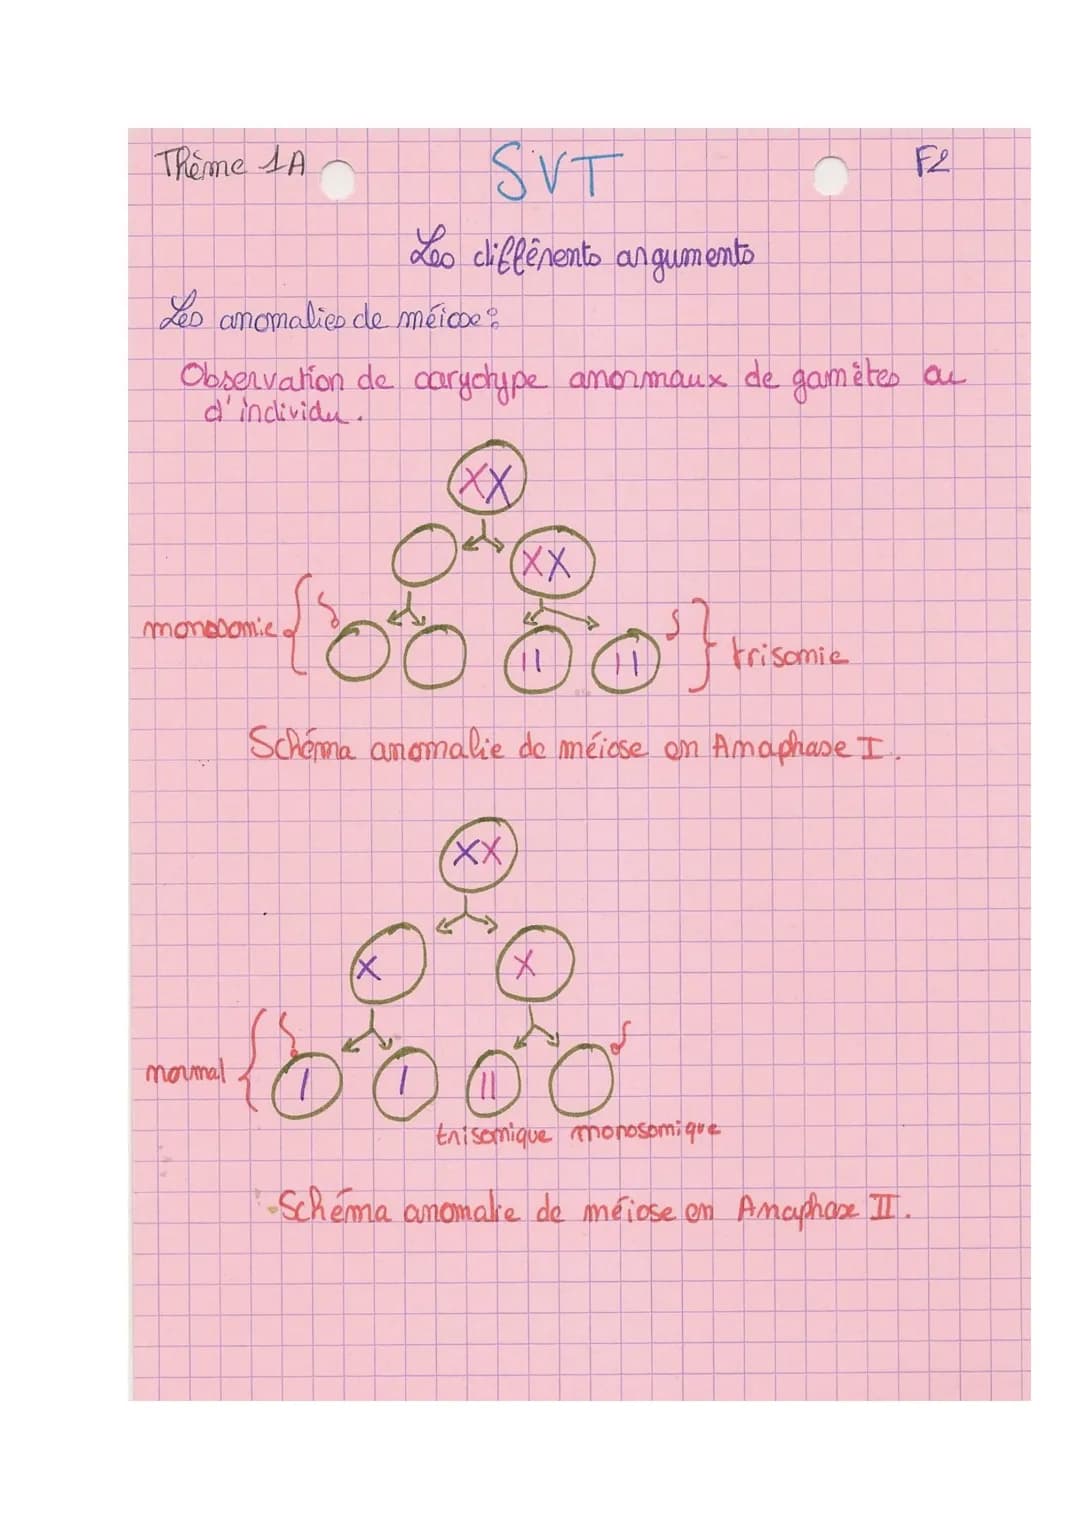 Thème 1A
SVT
F2
Les différents arguments
Les anomalies de méiose :
Observation de caryotype anormaux de gamètes ou
d'individu.
monosomie
trisomie
Schéma anomalie de méiose en Anaphase I.
normal
trisomique monosomique
Schéma anomalie de méiose en Anaphase II.